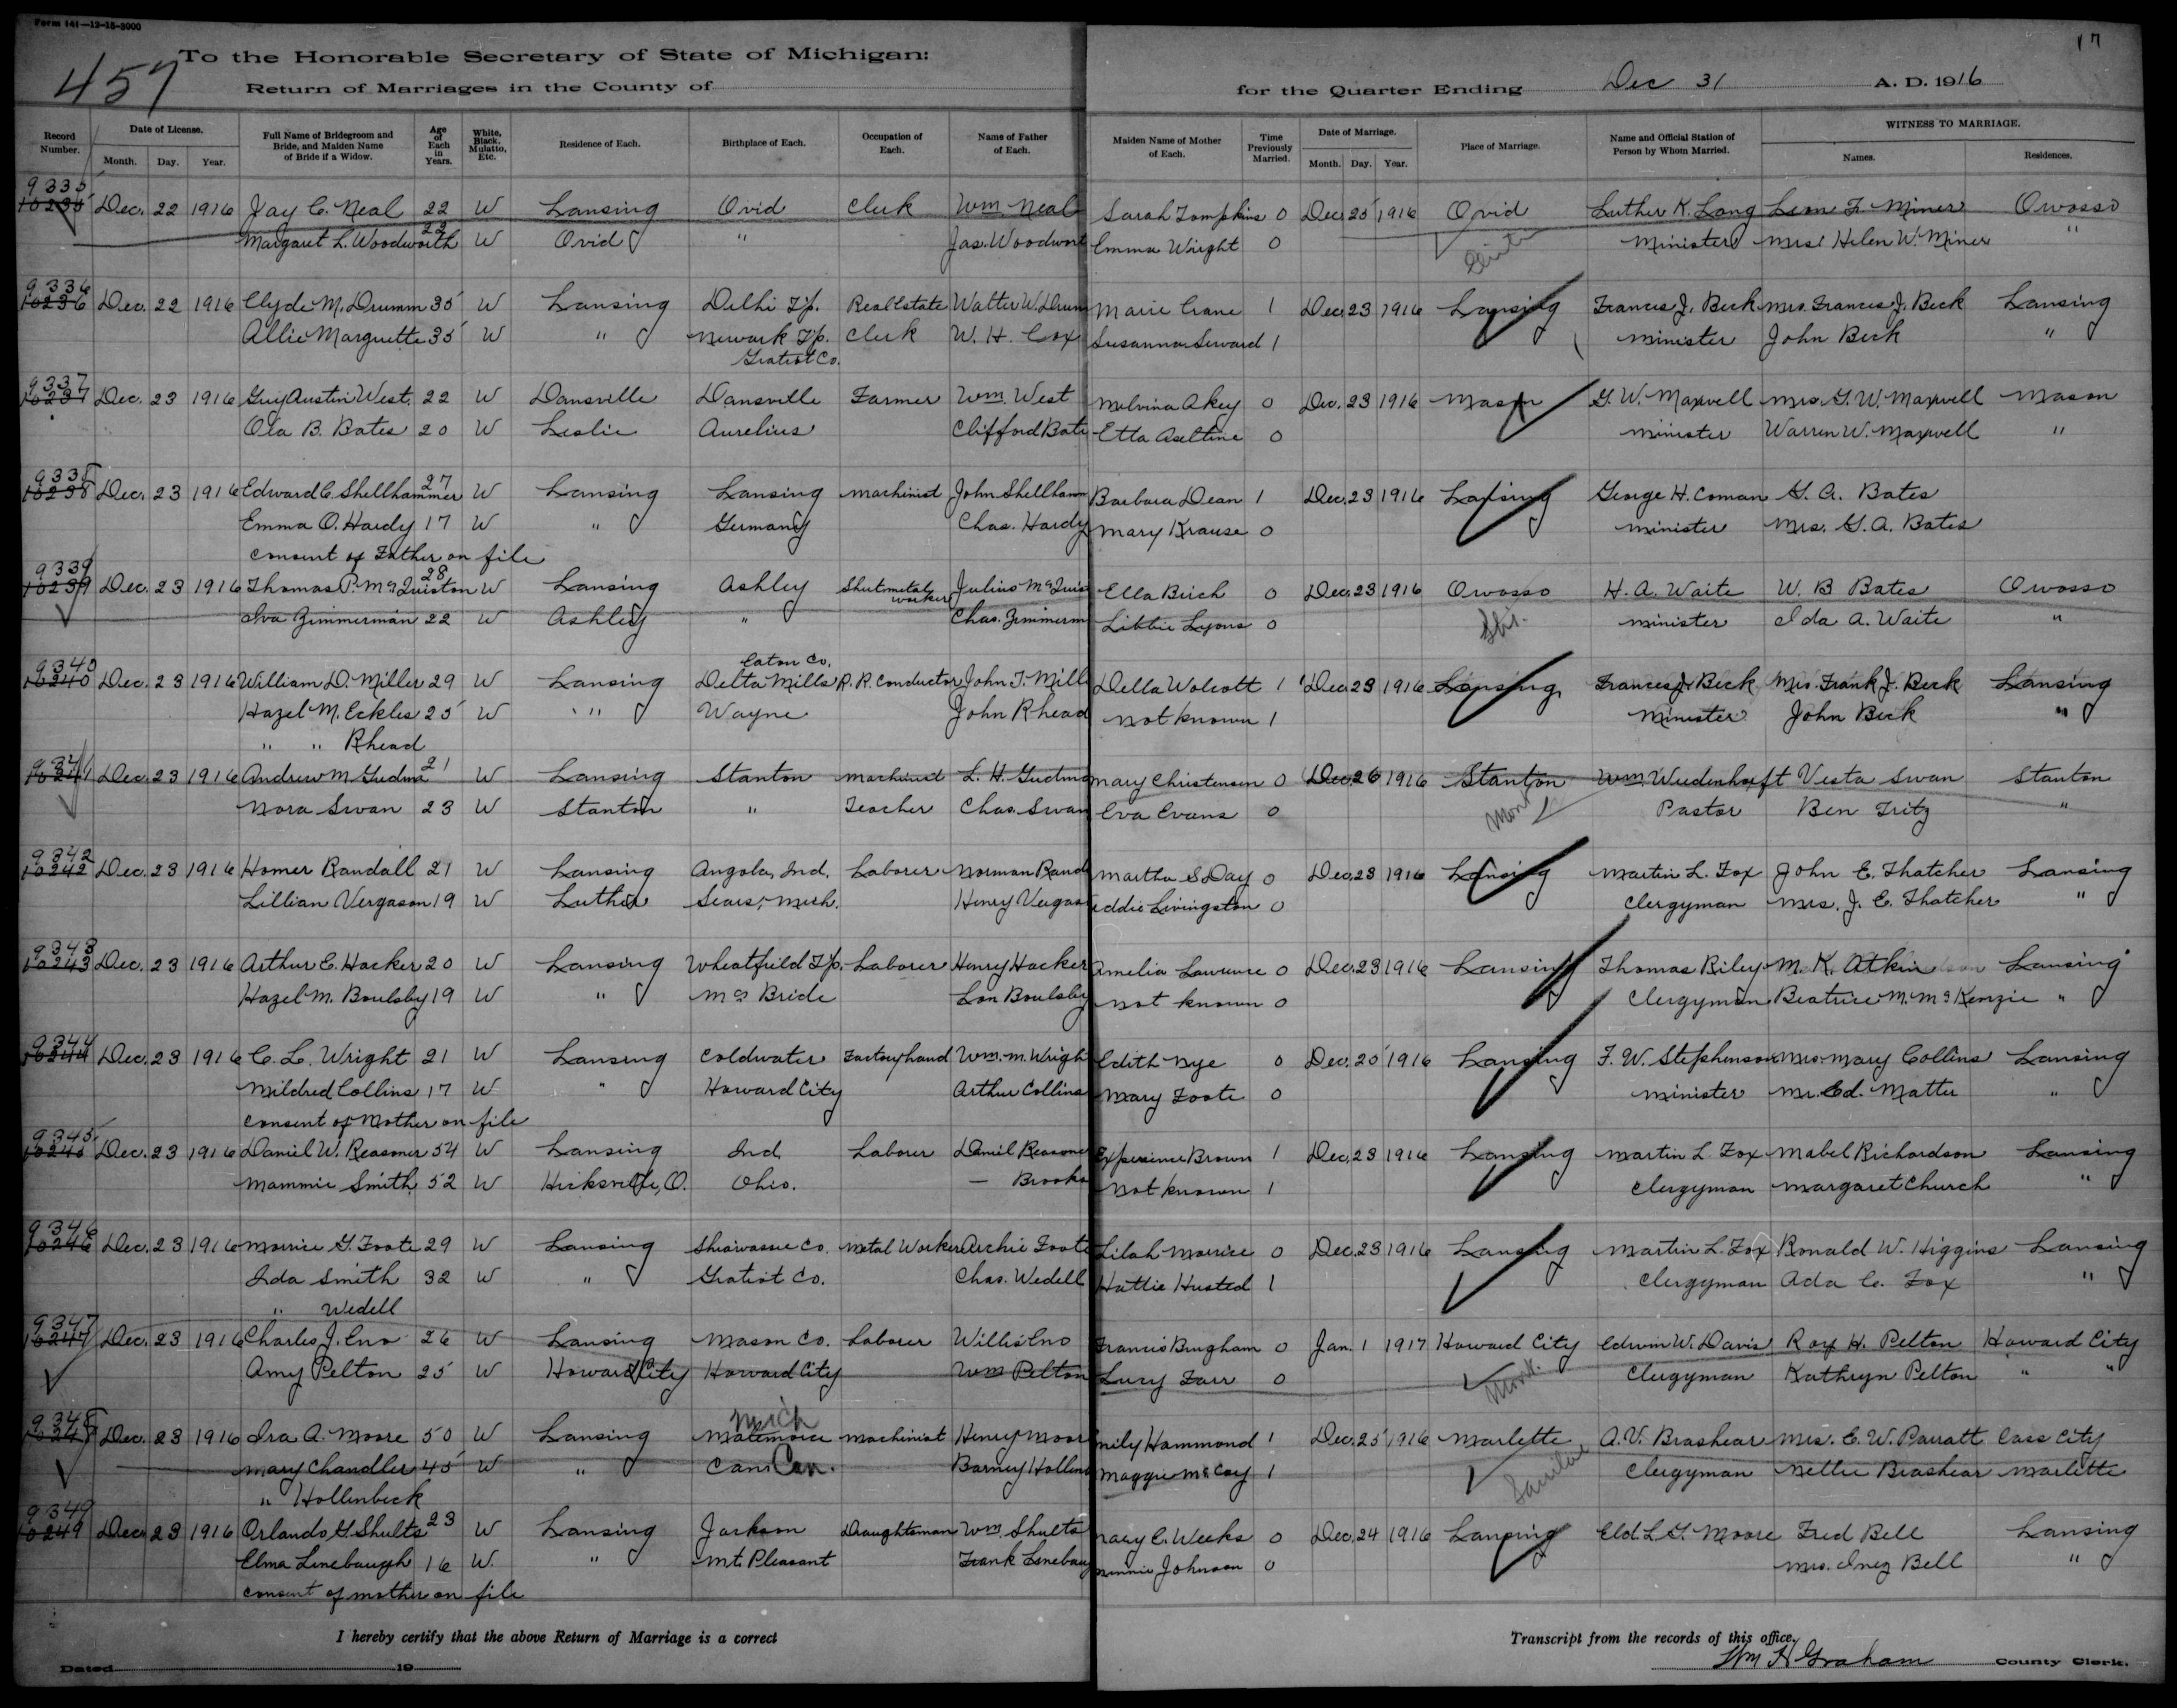 Form 141—12-15-3000
457
17
To the Honorable Secretary of State of Michigan:
Return of Marriages in the County of
for the Quarter Ending Dec 31 A. D. 1916
Record Number. Date of License. Full Name of Bridegroom and Bride, and Maiden Name of Bride if a Widow. Age of Each in Years. White, Black, Mulatto, Etc. Residence of Each. Birthplace of Each. Occupation of Each. Name of Father of Each. Maiden Name of Mother of Each. Time Previously Married. Date of Marriage. Place of Marriage. Name and Official Station of Person by Whom Married. WITNESS TO MARRIAGE.
Month. Day. Year. Month. Day. Year. Names. Residences.
9335
10235 Dec. 22 1916 Jay C. Neal 22 W Lansing Ovid Clerk Wm. Neal Sarah Tompkins 0 Dec 25 1916 Ovid Luther K. Long Leon F. Miner Owosso
Margaret L. Woodworth 22 W Ovid " Jas. Woodwort Emma Wright 0 Minister Mrs. Helen W. Miner "
9336
10236 Dec. 22 1916 Clyde M. Drumm 35 W Lansing Delhi Tp. Real Estate Walter W. Drum Marie Crane 1 Dec. 23 1916 Lansing Frances J. Beck Mrs. Frances J. Beck Lansing
Allie Marguette 35 W " Newark Tp. Clerk W. H. Cox Susanna Seward 1 Minister John Beck "
Gratiot Co.
9337
10237 Dec. 23 1916 Guy Austin West. 22 W Dansville Dansville Farmer Wm. West Melvina Akey 0 Dec. 23 1916 Mason G. W. Maxwell Mrs. G. W. Maxwell Mason
Ola B. Bates 20 W Leslie Aurelius Clifford Bate Etta Aseltine 0 Minister Warren W. Maxwell "
9338
10238 Dec. 23 1916 Edward C. Shellhammer 27 W Lansing Lansing Machinist John Shellham Barbara Dean 1 Dec. 23 1916 Lansing George H. Coman G. A. Bates
Emma O. Hardy 17 W " Germany Chas. Hardy Mary Krause 0 Minister Mrs. G. A. Bates
Consent of Father on file
9339
10239 Dec. 23 1916 Thomas P. McQuiston 28 W Lansing Ashley Sheetmetal worker Julius McQuis Ella Birch 0 Dec. 23 1916 Owosso H. A. Waite W. B Bates Owosso
Iva Zimmerman 22 W Ashley " Chas. Zimmerm Libbie Lyons 0 Shi. Minister Ida A. Waite "
9340 Eaton Co.
10240 Dec. 23 1916 William D. Miller 29 W Lansing Delta Mills R. R. Conductor John T. Mill Della Wolcott 1 Dec 23 1916 Lansing Frances J. Beck Mrs. Frank J. Beck Lansing
Hazel M. Eckles 25 W " Wayne John Rhead Not known 1 Minister John Beck "
" " Rhead
9341
10241 Dec. 23 1916 Andrew M. Gudma 21 W Lansing Stanton Machinist L. H. Gudma Mary Christensen 0 Dec. 26 1916 Stanton Wm. Weedenhoeft Vesta Swan Stanton
Nora Swan 23 W Stanton " Teacher Chas. Swan Eva Evans 0 Mont Pastor Ben Fritz "
9342
10242 Dec. 23 1916 Homer Randall 21 W Lansing Angola, Ind. Laborer Norman Rand Martha S Day 0 Dec. 23 1916 Lansing Martin L. Fox John E. Thatcher Lansing
Lillian Vergason 19 W Luther Sears, Mich. Henry Vergas Addie Livingston 0 Clergyman Mrs. J. E. Thatcher "
9343
10243 Dec. 23 1916 Arthur E. Hacker 20 W Lansing Wheatfield Tp. Laborer Henry Hacker Amelia Lawrence 0 Dec. 23 1916 Lansing Thomas Riley M. K. Atkin Lansing
Hazel M. Boulsby 19 W " McBride Lon Boulsby Not known 0 Clergyman Beatrice M. McKenzie "
9344
10244 Dec. 23 1916 C. L. Wright 21 W Lansing Coldwater Factory hand Wm. M. Wrigh Edith Nye 0 Dec. 25 1916 Lansing F. W. Stephenson Mrs. Mary Collins Lansing
Mildred Collins 17 W " Howard City Arthur Collins Mary Foote 0 Minister Mr. Ed. Matter "
Consent of Mother on file
9345
10245 Dec. 23 1916 Daniel W. Reasoner 54 W Lansing Ind. Laborer Daniel Reasone Experience Brown 1 Dec. 23 1916 Lansing Martin L. Fox Mabel Richardson Lansing
Mammie Smith 52 W Hicksville, O. Ohio. — Brooks Not known 1 Clergyman Margaret Church "
9346
10246 Dec. 23 1916 Morrice G. Foote 29 W Lansing Shiawassee Co. Metal Worker Archie Foote Lilah Morrice 0 Dec. 23 1916 Lansing Martin L. Fox Ronald W. Higgins Lansing
Ida Smith 32 W " Gratiot Co. Chas. Wedell Hattie Husted 1 Clergyman Ada C. Fox "
" Wedell
9347
10247 Dec. 23 1916 Charles J. Eno 26 W Lansing Mason Co. Laborer Willis Eno Francis Bingham 0 Jan. 1 1917 Howard City Edwin W. Davis Roy H. Pelton Howard City
Amy Pelton 25 W Howard City Howard City Wm Pelton Lucy Farr 0 Mont. Clergyman Kathryn Pelton " "
9348 Mich
10248 Dec. 23 1916 Ira A. Moore 50 W Lansing Machinist Henry Moor Emily Hammond 1 Dec. 25 1916 Marlette A. V. Brashear Mrs. C. W. Parratt Cass City
Mary Chandler 45 W " Can. Can. Barney Hollenb Maggie McCoy 1 Sanilac Clergyman Nellie Brashear Marlette
" Hollenbeck
9349
10249 Dec. 23 1916 Orlando G. Shults 23 W Lansing Jackson Draughtsman Wm. Shults Mary C. Weeks 0 Dec. 24 1916 Lansing Eld. L. G. Moore Fred Bell Lansing
Elma Linebaugh 16 W. " Mt. Pleasant Frank Linebaug Minnie Johnson 0 Mrs. Inez Bell "
Consent of mother on file
I hereby certify that the above Return of Marriage is a correct Transcript from the records of this office.
Dated 19 Wm H Graham County Clerk.